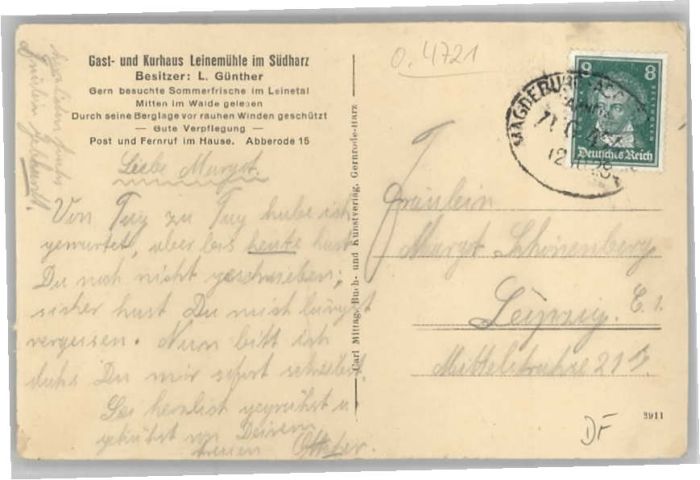 Gast- und Kurhaus Leinemühle im Südharz
Besitzer: L. Günther
Gern besuchte Sommerfrische im Leinetal
Mitten im Walde gelegen
Durch seine Berglage vor rauhen Winden geschützt
— Gute Verpflegung —
Post und Fernruf im Hause. Abberode 15
Liebe Margot.
Von Tag zu Tag habe ich
gewartet, aber bis heute hast
Du noch nicht geschrieben;
sicher hast Du mich längst
vergessen. Nun bitt ich
daß Du mir sofort schreibst.
Sei herzlich gegrüßt u.
geküßt von Deinem
treuen
Carl Mittag, Buch- und Kunstverlag, Gernrode-Harz
0.4721
8 8
Deutsches Reich
MAGDEBURG
Fräulein
Margot Schönenberg
Leipzig. C 1.
Mittelstraße 21
3911
DF